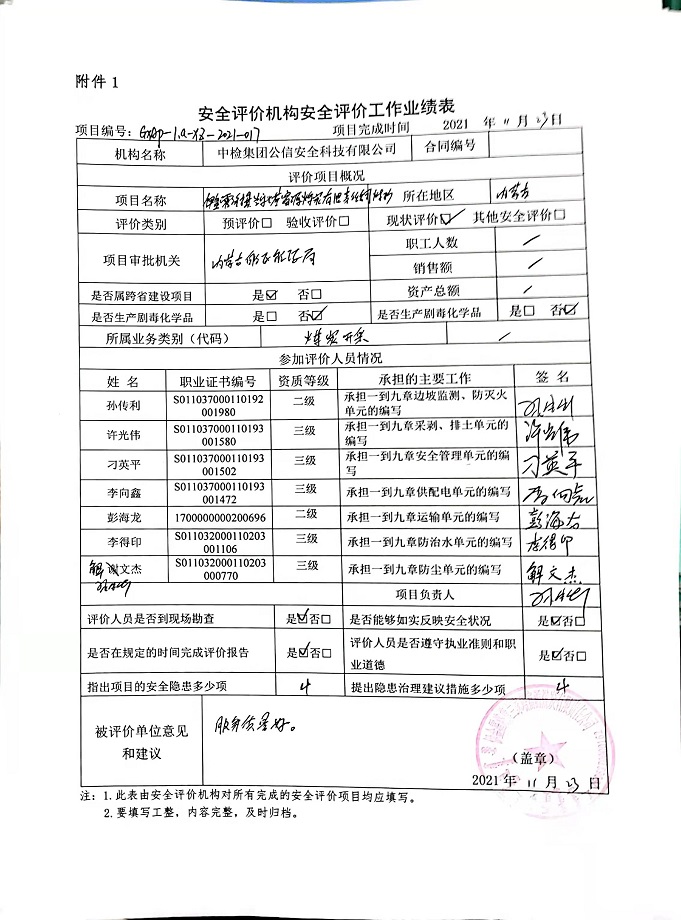 附件 1
安全评价机构安全评价工作业绩表
项目编号： 项目完成时间 2021 年 11 月 23 日
机构名称 中检集团公信安全科技有限公司 合同编号
评价项目概况
项目名称 所在地区 内蒙古
评价类别 预评价□ 验收评价□ 现状评价☑ 其他安全评价□
项目审批机关 内蒙古 能源局 职工人数 /
销售额 /
资产总额 /
是否属跨省建设项目 是☑ 否□
是否生产剧毒化学品 是□ 否☑ 是否生产剧毒化学品 是□ 否☑
所属业务类别（代码） 煤炭开采 /
参加评价人员情况
姓 名 职业证书编号 资质等级 承担的主要工作 签 名
孙传利 S011037000110192001980 二级 承担一到九章边坡监测、防灭火单元的编写 孙传利
许光伟 S011037000110193001580 三级 承担一到九章采剥、排土单元的编写 许光伟
刁英平 S011037000110193001502 三级 承担一到九章安全管理单元的编写 刁英平
李向鑫 S011037000110193001472 三级 承担一到九章供配电单元的编写 李向鑫
彭海龙 1700000000200696 二级 承担一到九章运输单元的编写 彭海龙
李得印 S011032000110203001106 三级 承担一到九章防治水单元的编写 李得印
解文杰 S011032000110203000770 三级 承担一到九章防尘单元的编写 解文杰
孙传利
项目负责人 孙传利
评价人员是否到现场勘查 是☑否□ 是否能够如实反映安全状况 是☑否□
是否在规定的时间完成评价报告 是☑否□ 评价人员是否遵守执业准则和职业道德 是☑否□
指出项目的安全隐患多少项 4 提出隐患治理建议措施多少项 4
被评价单位意见和建议 服务质量好。
（盖章）
2021 年 11 月 23 日
注：1.此表由安全评价机构对所有完成的安全评价项目均应填写。
2.要填写工整，内容完整，及时归档。